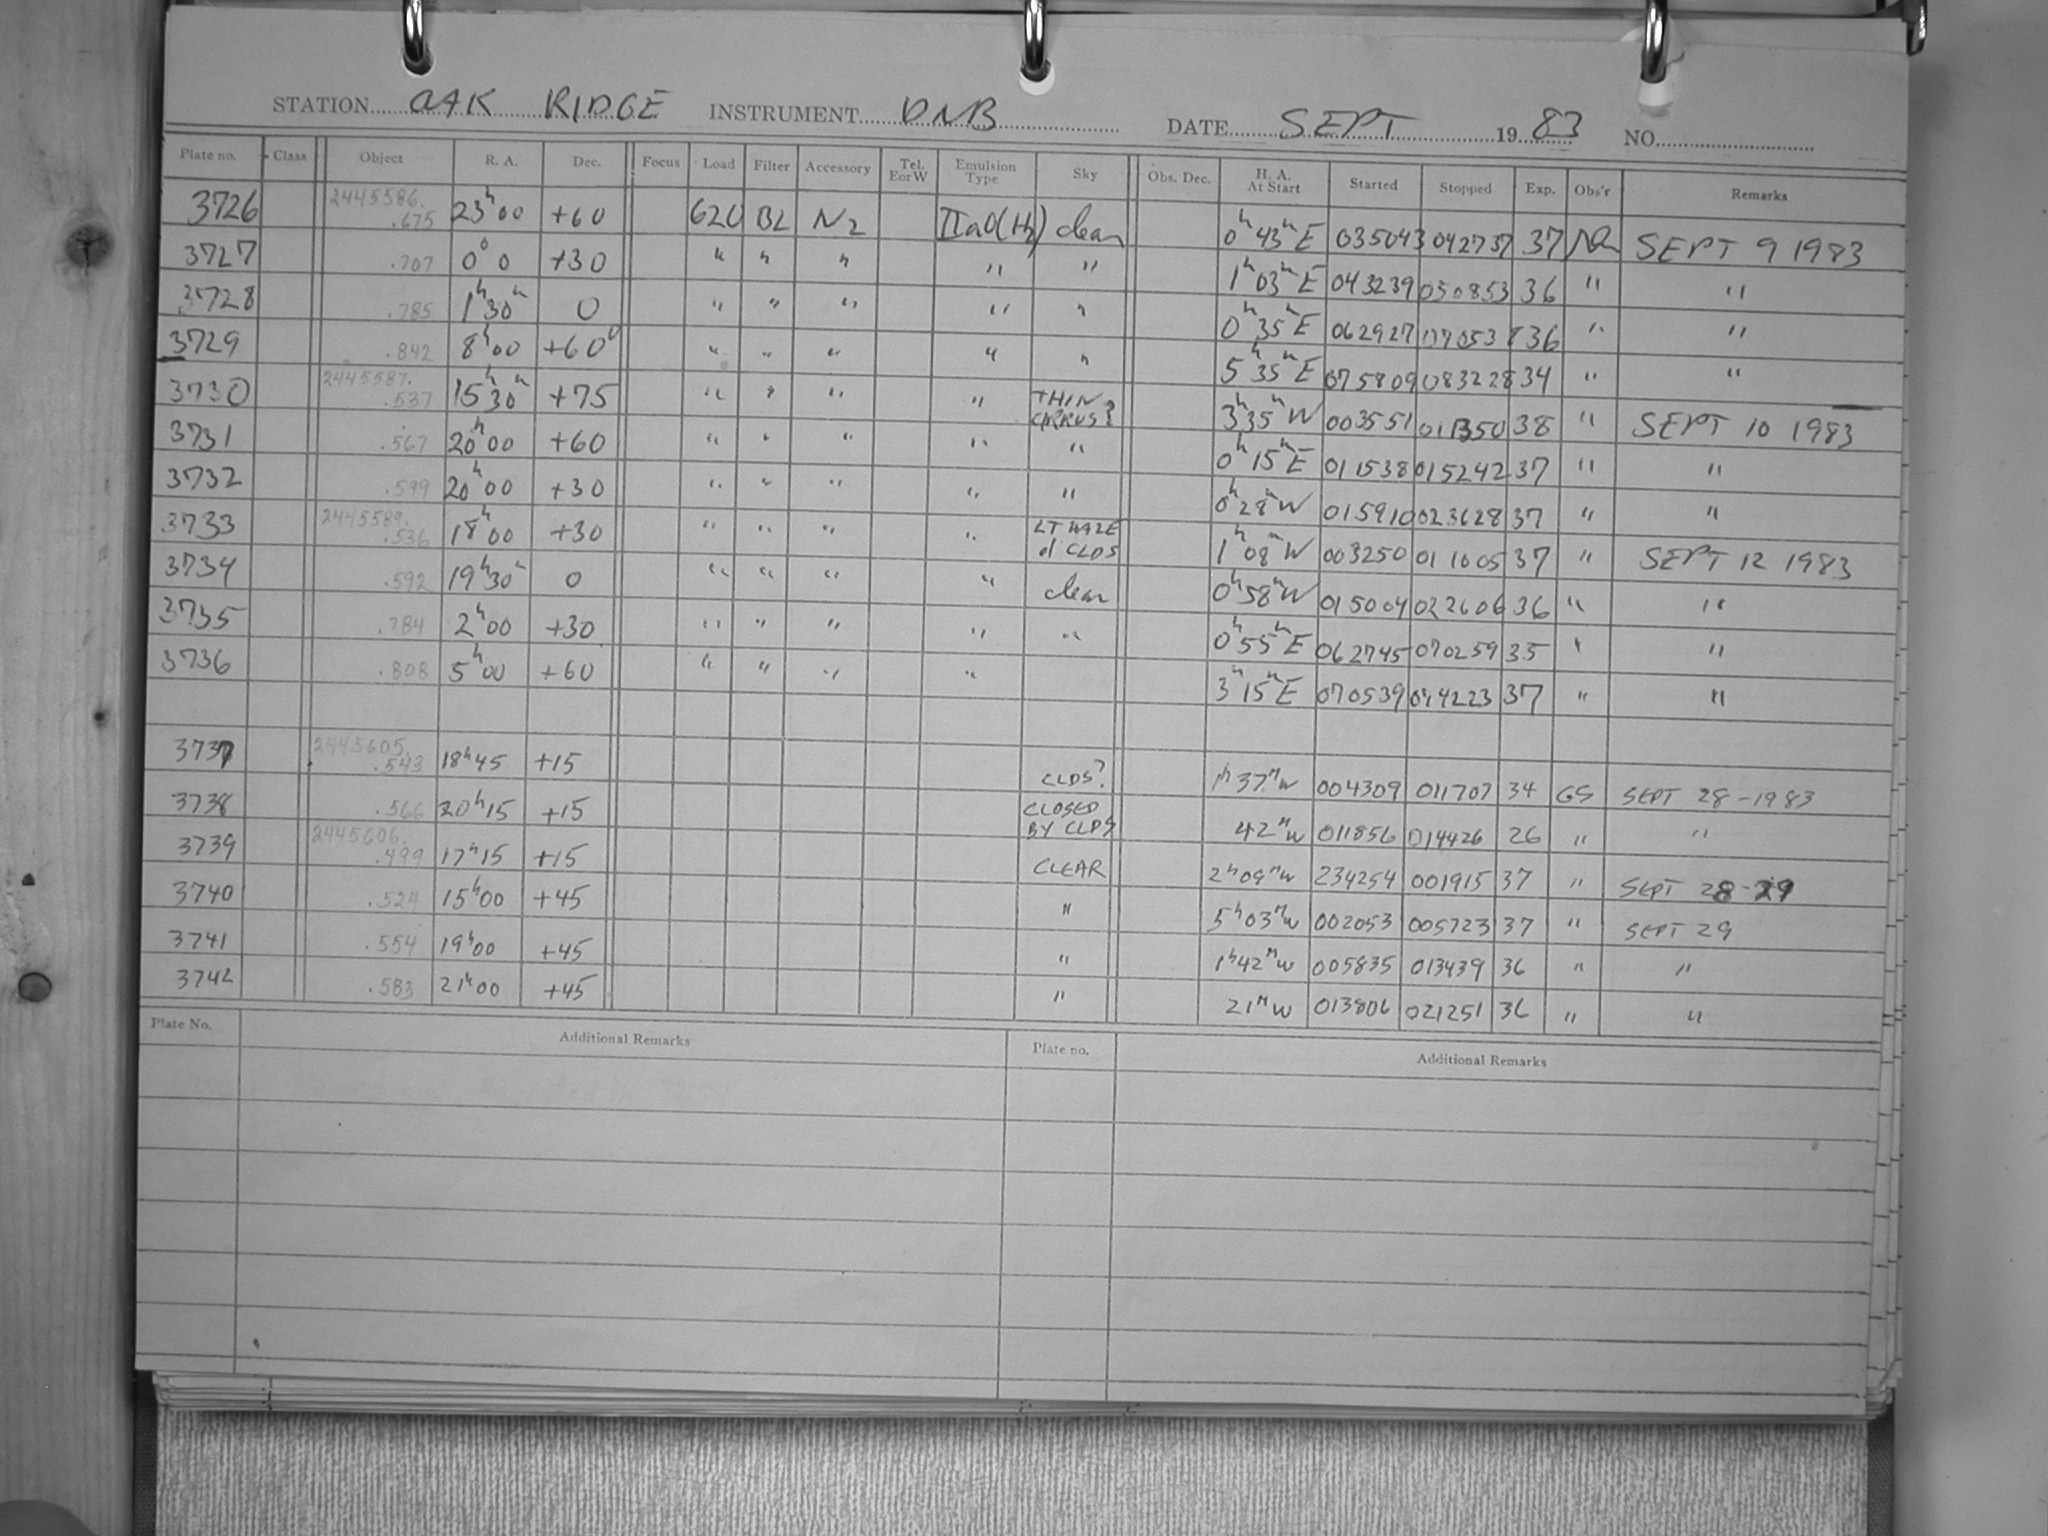 STATION OAK RIDGE INSTRUMENT DNB DATE SEPT 19 83 NO.
Plate no. Class Object R. A. Dec. Focus Load Filter Accessory Tel. E or W Emulsion Type Sky Obs. Dec. H. A. At Start Started Stopped Exp. Obs'r Remarks
3726 2445586. .675 23h00 +60 620 BL N2 IIaO(H2) clear 0h43mE 035043 042737 37 SEPT 9 1983
3727 .707 0 0 +30 " " " " " 1h03mE 043239 050853 36 " "
3728 .785 1h30m 0 " " " " " 0h35mE 062927 36 " "
3729 .842 8h00 +60 " " " " " 5h35mE 075809 083228 34 " "
3730 2445587. .537 15h30m +75 " " " " THIN CIRRUS? 3h35mW 003551 011350 38 " SEPT 10 1983
3731 .567 20h00 +60 " " " " " 0h15mE 011538 015242 37 " "
3732 .599 20h00 +30 " " " " " 0h28mW 015910 023628 37 " "
3733 2445589. .536 18h00 +30 " " " " LT HAZE CLDS 1h08mW 003250 011005 37 " SEPT 12 1983
3734 .592 19h30m 0 " " " " clear 0h58mW 015004 022606 36 " "
3735 .784 2h00 +30 " " " " " 0h55mE 062745 070259 35 " "
3736 .808 5h00 +60 " " " " 3h15mE 070539 074223 37 " "
3737 2445605. .543 18h45 +15 CLDS? 1h37mW 004309 011707 34 GS SEPT 28-1983
3738 .566 20h15 +15 CLOSED BY CLDS 42mW 011856 014426 26 " "
3739 2445606. .499 17h15 +15 CLEAR 2h09mW 234254 001915 37 " SEPT 28-29
3740 .524 15h00 +45 " 5h03mW 002053 005723 37 " SEPT 29
3741 .554 19h00 +45 " 1h42mW 005835 013439 36 " "
3742 .583 21h00 +45 " 21mW 013806 021251 36 " "
Plate No. Additional Remarks Plate no. Additional Remarks